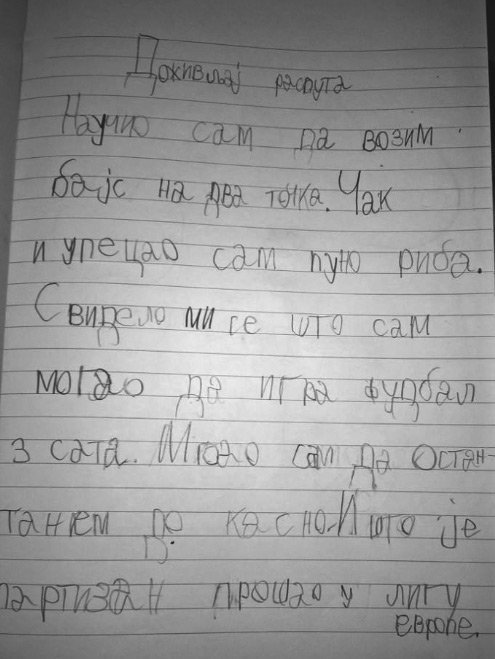 Доживљај распута
Научио сам да возим
бајс на два точка. Чак
и упецао сам пуно риба.
Свидело ми се што сам
могао да игра фудбал
3 сата. Могао сам да остан-
танем до касно. И што је
партизан прошао у лигу
европе.